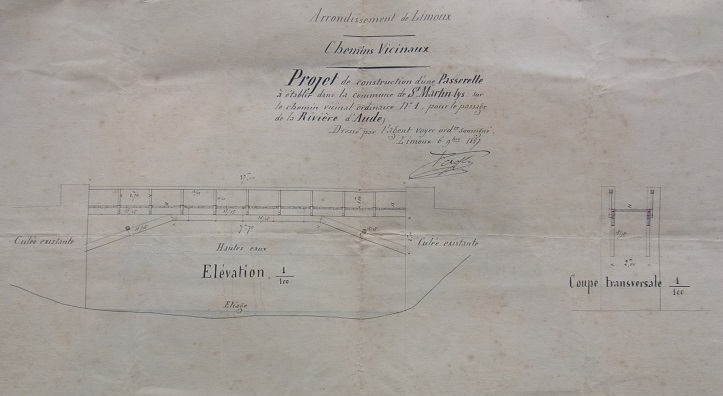 Arrondissement de Limoux
Chemins Vicinaux
Projet de construction d'une Passerelle
à établir dans la commune de St Martin-lys sur
le chemin vicinal ordinaire N° 1, pour le passage
de la Rivière d'Aude,
Dressé par l'agent voyer ord.re soussigné,
Limoux 6 9bre
Culée existante
Culée existante
Hautes eaux
Elévation 1/100
Etiage
Coupe transversale 1/100